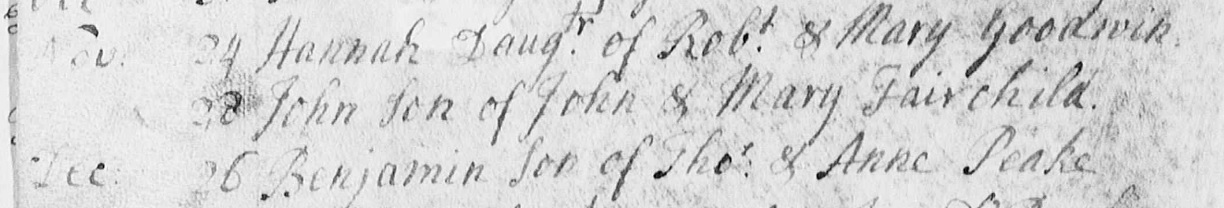 Nov. 24 Hannah Daugr. of Robt. & Mary Goodwin.
28 John Son of John & Mary Fairchild.
Dec. 26 Benjamin Son of Thos. & Anne Peake